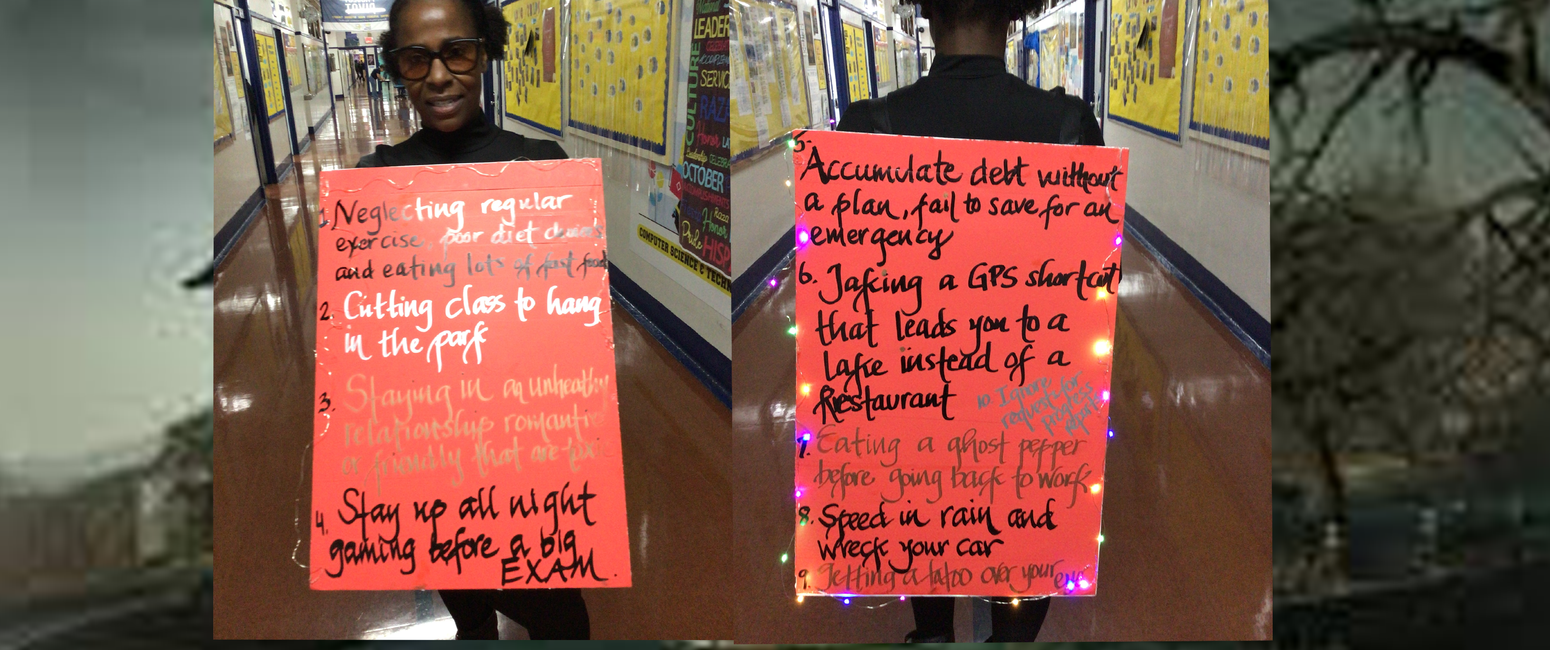 1. Neglecting regular
exercise, poor diet
and eating lots of fast food
2. Cutting class to hang
in the park
3. Staying in an unhealthy
relationship romantic
or friendly that are
4. Stay up all night
gaming before a big
EXAM.
LEADER
CULTURE
SERVICE
OCTOBER
Honor
Pride
HISP
COMPUTER SCIENCE & TECHN
5.
Accumulate debt without
a plan, fail to save for an
emergency
6. Taking a GPS shortcut
that leads you to a
lake instead of a
Restaurant
10. Ignore
request for
progress
7. Eating a ghost pepper
before going back to work
8. Speed in rain and
wreck your car
9. Getting a tatoo over your